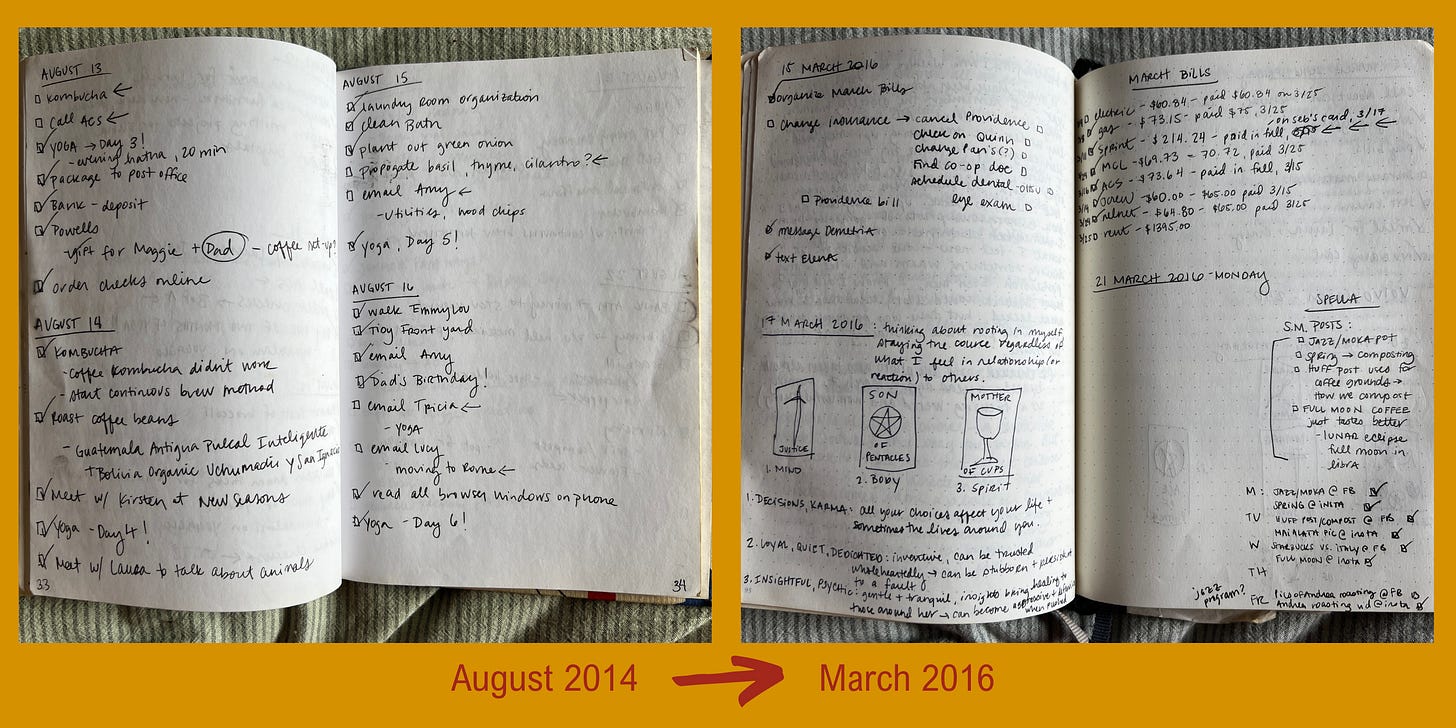 AUGUST 13
Kombucha ←
Call ACS ←
YOGA → Day 3!
- evening hatha, 20 min
package to post office
Bank - deposit
Powells
- gift for Maggie + Dad - coffee set-up?
order checks online
AUGUST 14
KOMBUCHA
- coffee kombucha didn't work
- start continuous brew method
Roast coffee beans
- Guatemala Antigua Pulcal Inteligente
+ Bolivia Organic Uchumachi y San Ignacio
Meet w/ Kirsten at New Seasons
Yoga - Day 4!
Meet w/ Laura to talk about animals
33
AUGUST 15
laundry room organization
clean Bath
plant out green onion
propogate basil, thyme, cilantro? ←
email Amy ←
- utilities, wood chips
Yoga, Day 5!
AUGUST 16
walk Emmylou
Tidy Front yard
email Amy
Dad's Birthday!
email Tricia ←
- YOGA
email Lucy
moving to Rome ←
read all browser windows on phone
Yoga - Day 6!
34
15 MARCH 2016
organize March Bills
change insurance → cancel Providence
check on Quinn
change Pan's (?)
Find co-op doc
schedule dental
eye exam
Providence bill
message Demetria
text Elena
17 MARCH 2016 : thinking about rooting in myself
staying the course regardless of
what I feel in relationship (or
reaction) to others.
JUSTICE
1. MIND
SON
OF
PENTACLES
2. BODY
MOTHER
OF CUPS
3. SPIRIT
1. DECISIONS, KARMA: all your choices affect your life +
sometimes the lives around you.
2. LOYAL, QUIET, DEDICATED: inventive, can be trusted
wholeheartedly → can be stubborn + persistent
to a fault
3. INSIGHTFUL, PSYCHIC: gentle + tranquil, insights bring healing to
those around her → can become
when pushed
MARCH BILLS
electric - $60.84 - paid $60.84 on 3/25
gas - $73.15 - paid $75, 3/25
on seb's card, 3/17
Sprint - $214.24 - paid in full, ← ← ←
MCL - $69.73 - 70.72, paid 3/25
ACS - $73.64 - paid in full, 3/15
- $60.00 - $65.00 paid 3/15
relnet - $64.80 - $65.00 paid 3/25
3/25 rent - $1395.00
21 MARCH 2016 - MONDAY
SPELLA
S.M. POSTS :
JAZZ/MOKA POT
SPRING → composting
HUFF POST used for
coffee grounds →
how we compost
FULL MOON COFFEE
just tastes better
- LUNAR eclipse
full moon in
libra
M : JAZZ/MOKA @ FB
SPRING @ INSTA
TU HUFF POST/COMPOST @ FB
MAIALATA PIC @ insta
W STARBUCKS VS. ITALY @ FB
FULL MOON @ insta
TH
jazz
program?
FR pic of Andrea roasting @ FB
Andrea roasting vid @ insta
August 2014 → March 2016